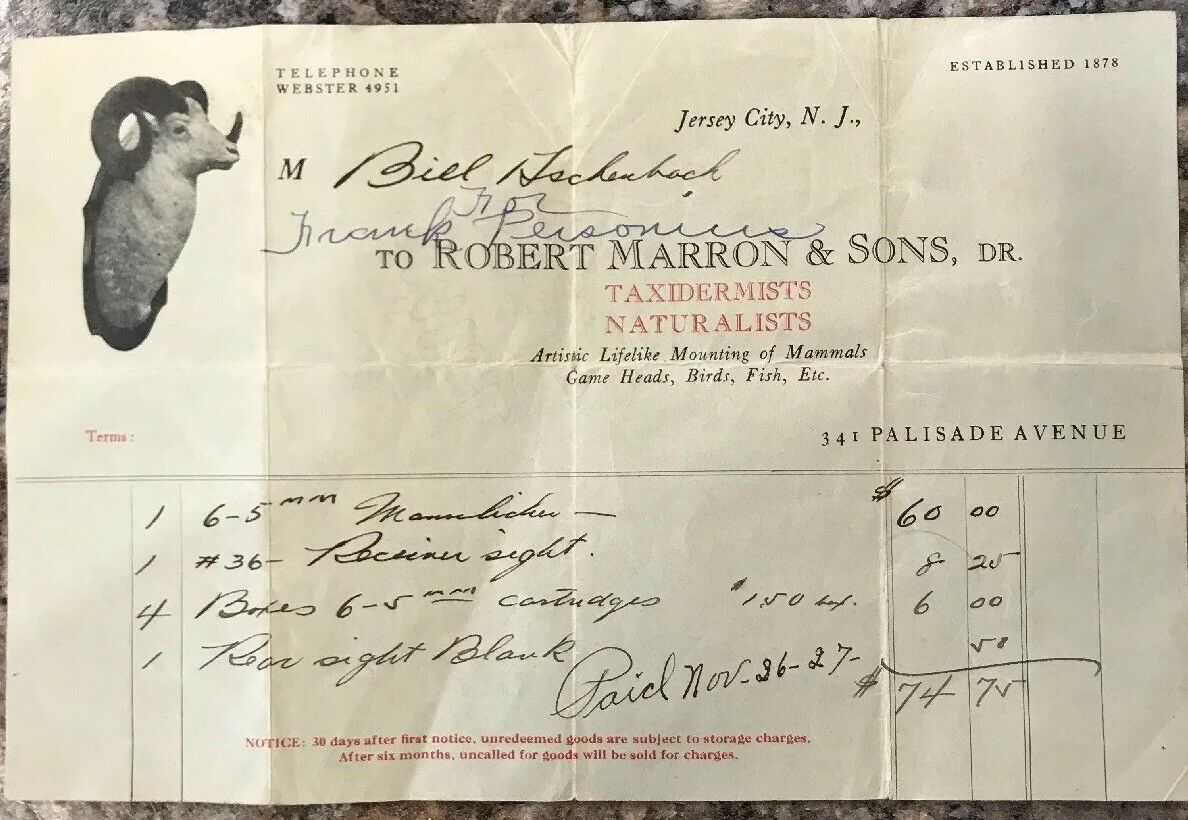 TELEPHONE
WEBSTER 4951
ESTABLISHED 1878
Jersey City, N. J.,
M Bill
For
Frank Personius
TO ROBERT MARRON & SONS, DR.
TAXIDERMISTS
NATURALISTS
Artistic Lifelike Mounting of Mammals
Game Heads, Birds, Fish, Etc.
Terms:
341 PALISADE AVENUE
1 6-5 mm Mannlicher — $ 60 00
1 #36- Receiver sight. 8 25
4 Boxes 6-5 mm cartridges $1.50 6 00
1 Rear sight Blank 50
Paid Nov-26-27- $ 74 75
NOTICE: 30 days after first notice, unredeemed goods are subject to storage charges.
After six months, uncalled for goods will be sold for charges.